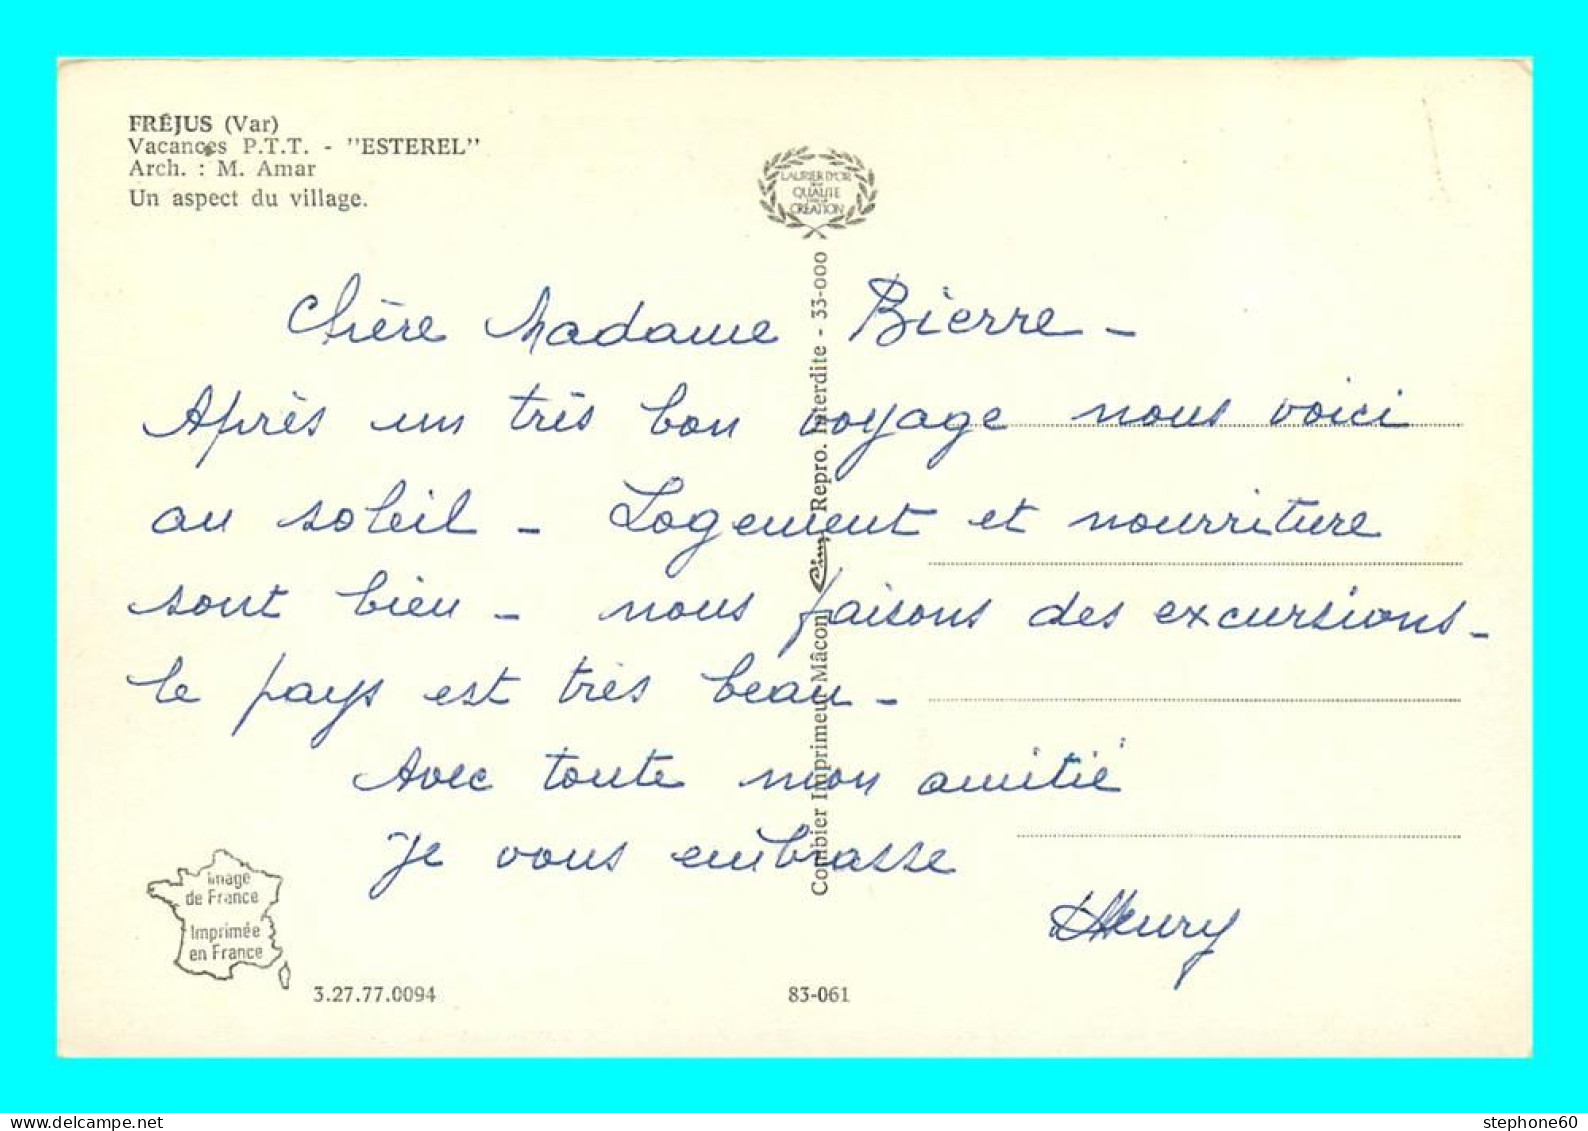 FRÉJUS (Var)
Vacances P.T.T. - "ESTEREL"
Arch. : M. Amar
Un aspect du village.
LAURIER D'OR
QUALITE
CREATION
Chère Madame Bierre -
Après un très bon voyage nous voici
au soleil - Logement et nourriture
sont bien - nous faisons des excursions -
le pays est très beau -
Avec toute mon amitié
Je vous embrasse
Combier Imprimeur Mâcon Cim Repro. Interdite - 33-000
Image
de France
Imprimée
en France
3.27.77.0094
83-061
stephone60